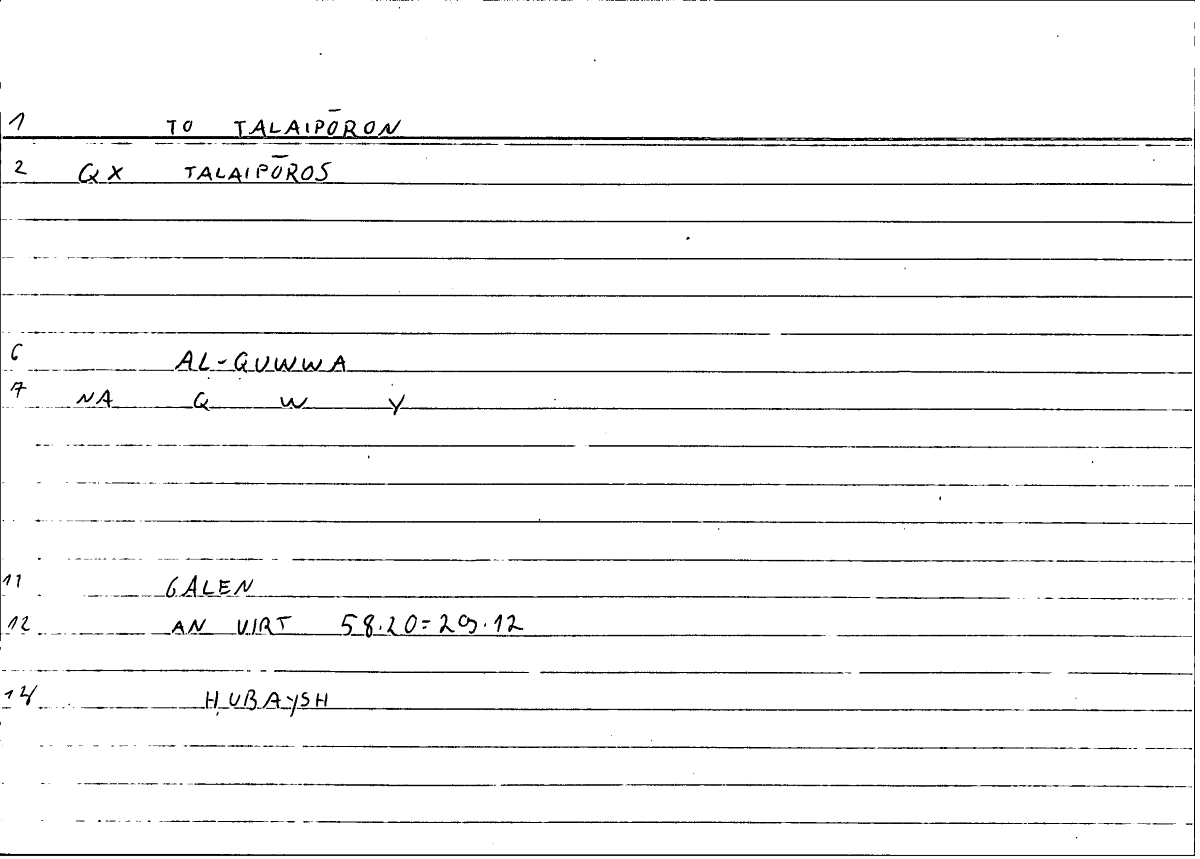 1 TO TALAIPŌRON
2 QX TALAIPŌROS
6 AL-QUWWA
7 NA Q W Y
11 GALEN
12 AN VIRT 58.20=29.12
14 ḤUBAYSH